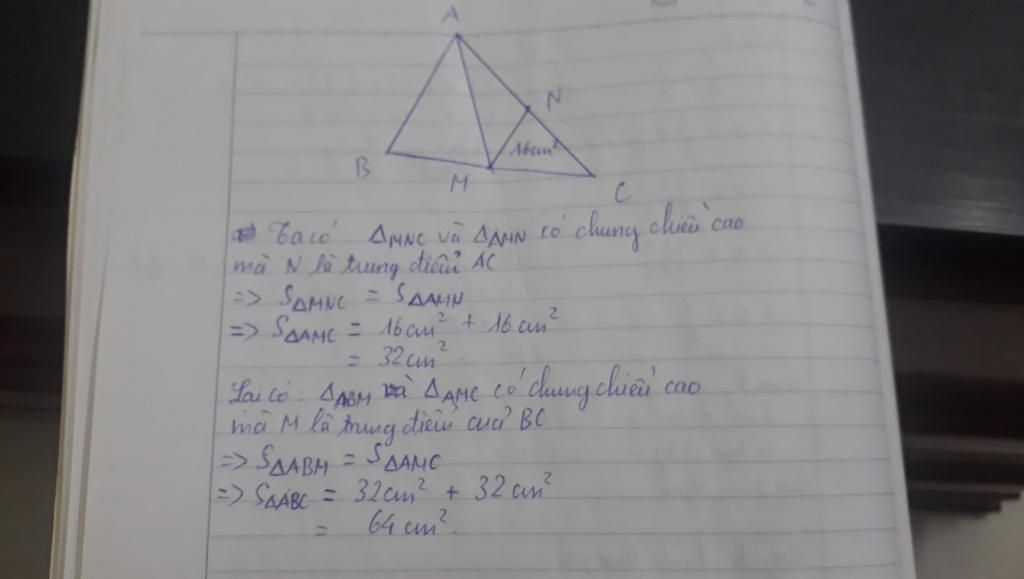 A
N
16cm²
B
M
C
Ta có ΔMNC và ΔAMN có chung chiều cao
mà N là trung điểm AC
=> SΔMNC = SΔAMN
=> SΔAMC = 16cm² + 16cm²
= 32cm².
Lại có: ΔABM và ΔAMC có chung chiều cao
mà M là trung điểm của BC
=> SΔABM = SΔAMC
=> SΔABC = 32cm² + 32cm²
= 64cm².